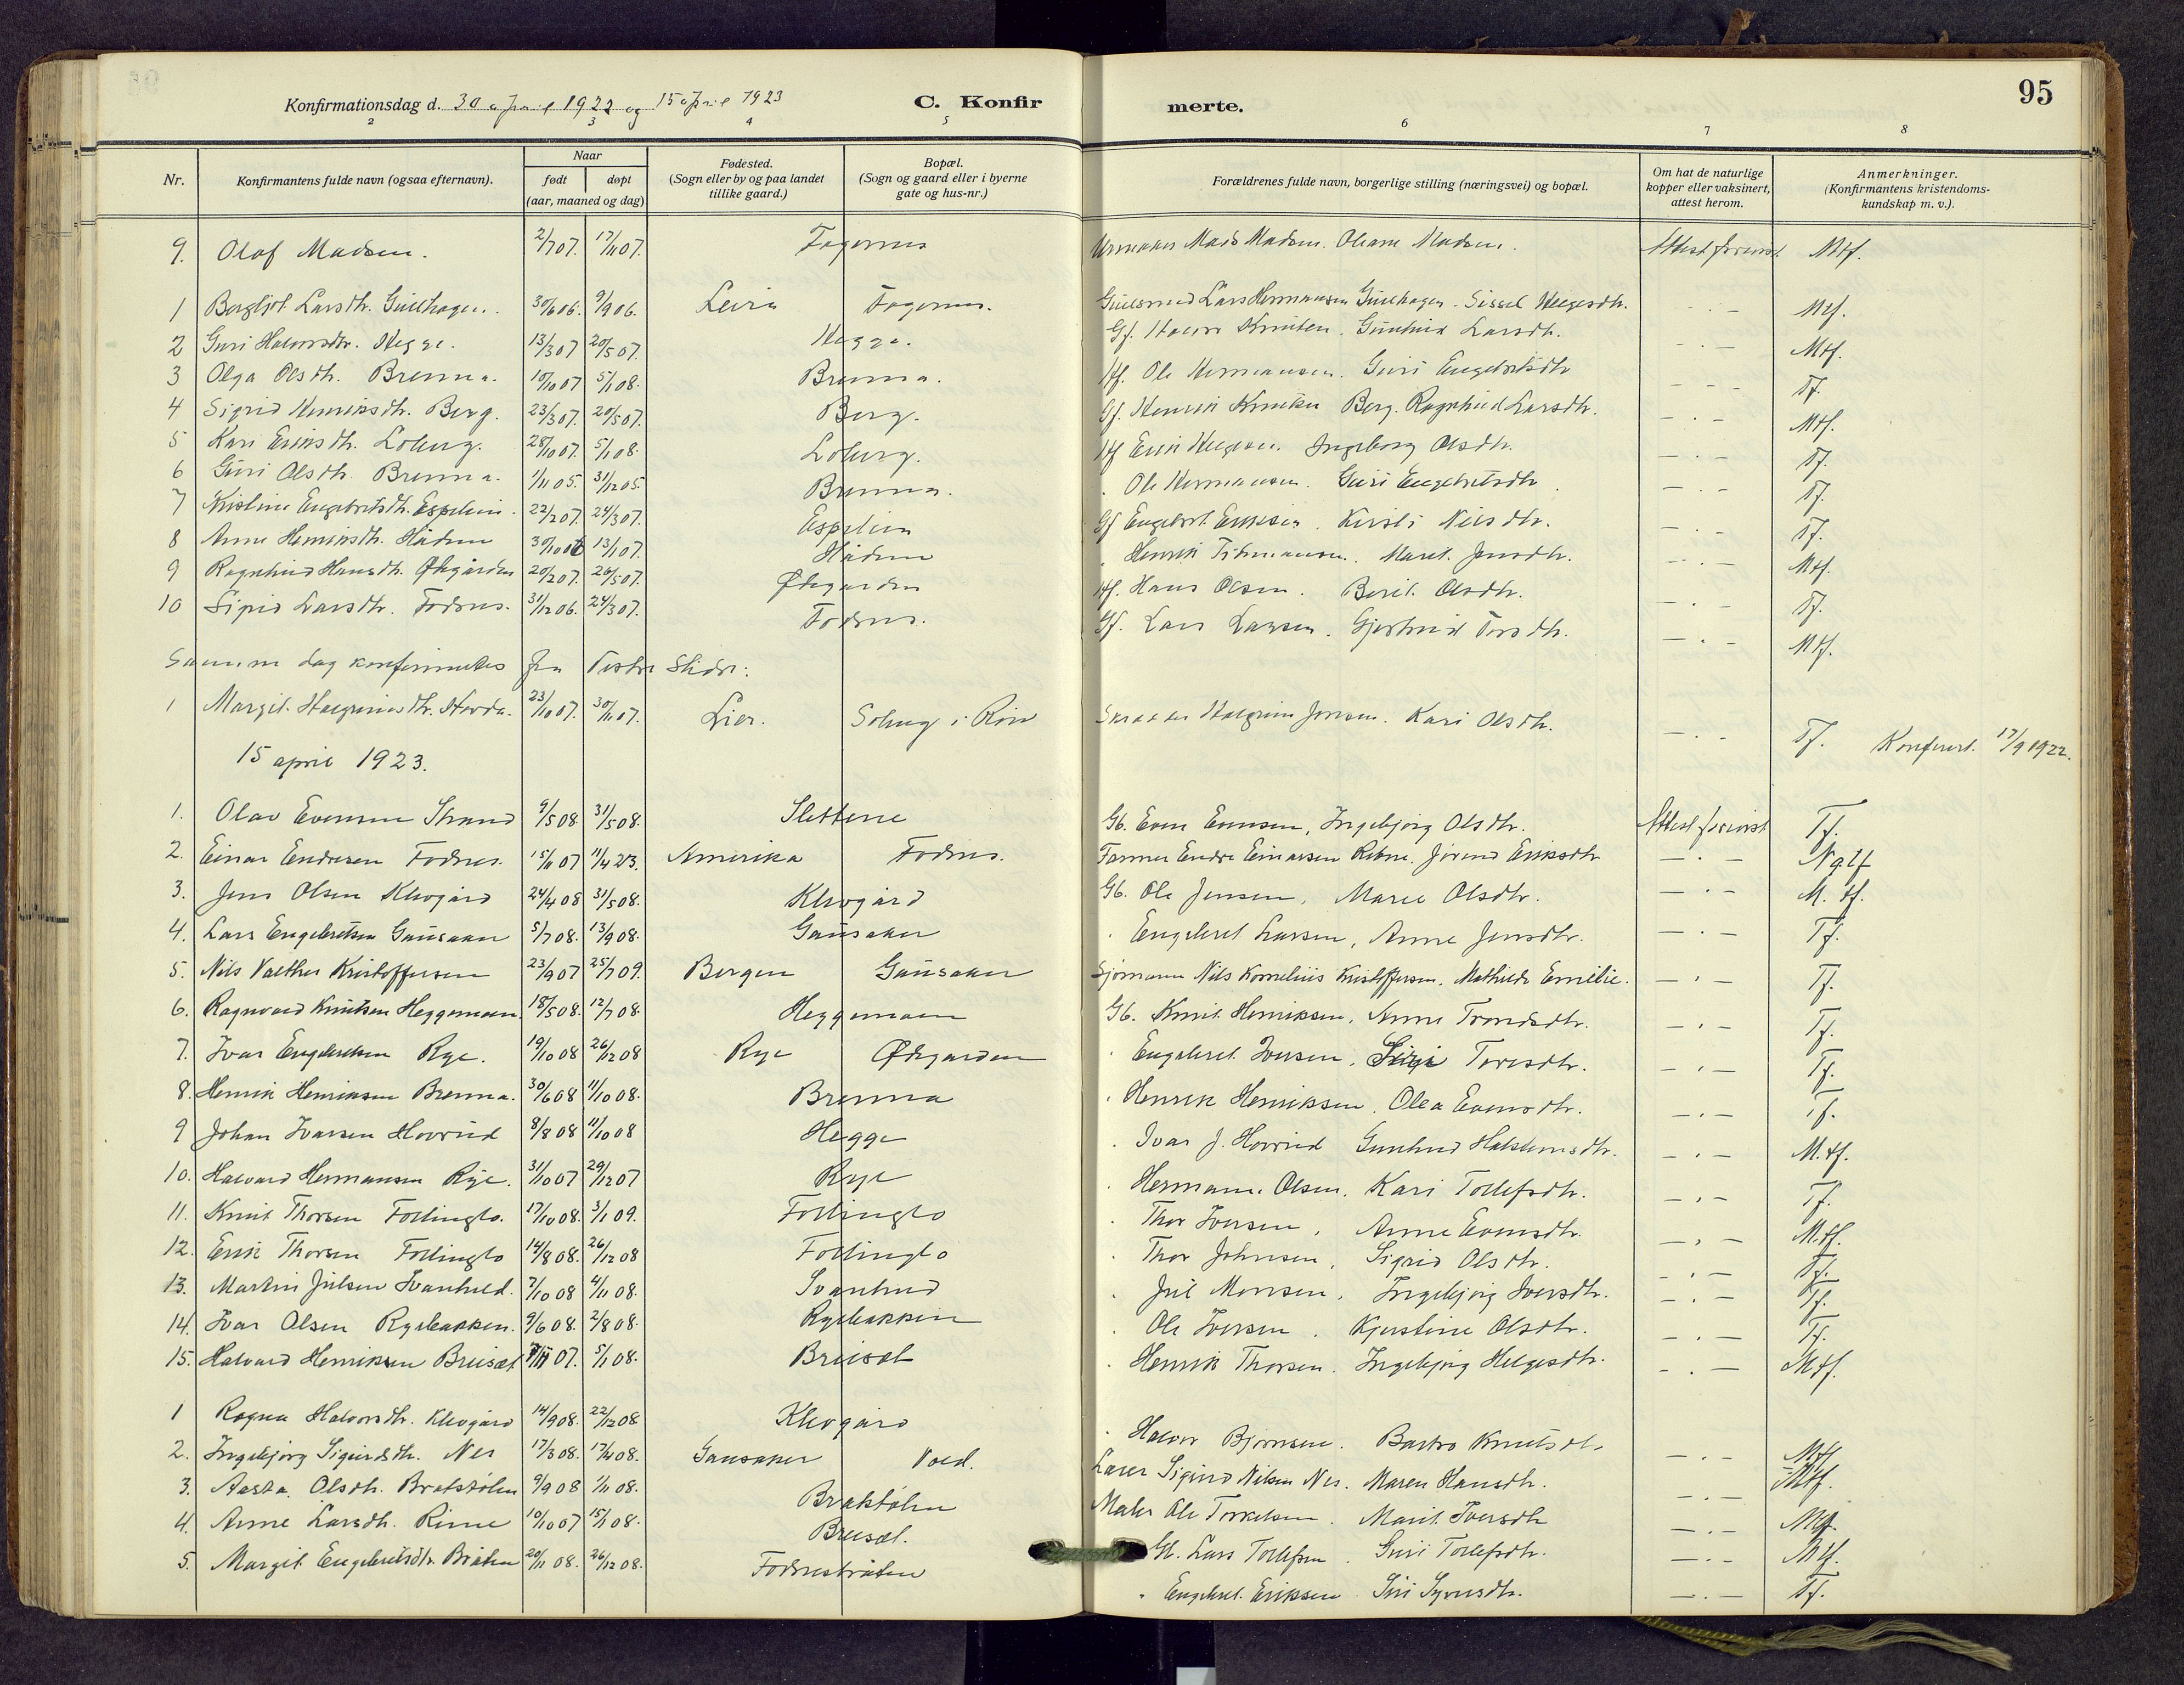 95
Konfirmationsdag d. 30 april 1922 og 15 april 1923 C. Konfirmerte.
2 3 4 5 6 7 8
Nr. Konfirmantens fulde navn (ogsaa efternavn). Naar født døpt (aar, maaned og dag) Fødested. (Sogn eller by og paa landet tillike gaard.) Bopæl. (Sogn og gaard eller i byerne gate og hus-nr.) Forældrenes fulde navn, borgerlige stilling (næringsvei) og bopæl. Om hat de naturlige kopper eller vaksinert, attest herom. Anmerkninger. (Konfirmantens kristendomskundskap m. v.).
9. Olaf Madsen. 2/7 07. 17/11 07. Fagernes Mads Madsen. Oleane Madsen. Attest forevist. Mtf.
1 Bergljot Larsdtr. Gullhagen. 30/6 06. 9/9 06. Leira Fagernes. Gullsmed Lars Hermansen Gullhagen. Sissel Helgesdtr. - . - Mtf.
2 Guri Halvorsdtr. Hegge. 13/3 07 20/5 07. Hegge. Gf. Halvor Knutsen. Gunhild Larsdtr. - . - Mtf.
3 Olga Olsdtr. Brenna. 10/10 07 5/1 08. Brenna. Hf. Ole Hermansen. Guri Engebretsdtr - - - Tf.
4 Sigrid Henriksdtr. Berg. 23/3 07. 20/5 07. Berg. Gf. Henrik Knutsen Berg. Ragnhild Larsdtr. - . - Mtf.
5 Kari Eriksdtr. Loberg. 28/10 07. 5/1 08. Loberg. Hf Erik Helgesen. Ingeborg Olsdtr. - . - Tf.
6 Guri Olsdtr. Brenna. 1/11 05. 31/12 05. Brenna. . Ole Hermansen. Guri Engebretsdtr. - . - Tf.
7 Kristine Engebretsdtr. Espelien. 22/2 07. 24/3 07. Espelien Gf Engebret Eriksen. Kirsti Nilsdtr. - . - Tf.
8 Anne Henriksdtr. Hådem 30/10 06 13/1 07. Hådem . Henrik. Marit Jensdtr. - . - Mtf.
9 Ragnhild Hansdtr. Ødegården 20/2 07. 26/5 07. Ødegarden Hf. Hans Olsen. Berit Olsdtr. - . - Tf.
10 Sigrid Larsdtr. Fodnes. 31/12 06. 24/3 07. Fodnes. Gf. Lars Larsen. Gjertrud Torsdtr. - . - Mtf.
Samme dag konfirmertes fra Vestre Slidre:
1 Margit Halgrimsdtr. Hovda. 23/10 07. 30/11 07. Lier. Solberg i Røn Skrædder Halgrim Jonsen. Kari Olsdtr. - . - Tf. Konfirmert. 17/9 1922.
15 april 1923.
1. Olav Evensen Strand 9/5 08 31/5 08. Slettene Gb. Even Evensen, Ingebjørg Olsdtr. Attest forevist Tf.
2. Einar Endresen Fodnes. 15/11 07 11/4 23. Amerika Fodnes. Farmer Endre Einarsen Rebne. Jørend Eriksdtr - . - Ngtf
3. Jens Olsen Klevgård 24/4 08 31/5 08. Klevgård Gb. Ole Jensen, Marie Olsdtr. - . - M. tf.
4. Lars Engebretsen Gausaker 5/7 08. 13/9 08. Gausaker . Engebret Larsen, Anne Jensdtr. - . - Tf.
5. Nils Valther Kristoffersen 23/9 07 25/7 09. Bergen Gausaker Sjømann Nils Kornelius Kristoffersen. Mathilde Emilie. - . - Tf.
6. Ragnvald Knutsen Heggemoen 18/5 08. 12/7 08. Heggemoen Gb. Knut Henriksen, Anne Trondsdtr. - . - Tf.
7. Ivar Engebretsen Rye. 19/10 08 26/12 08 Rye Ødegarden . Engebret Iversen. Siri Toresdtr. - . - Tf.
8. Henrik Henriksen Brenna. 30/6 08 11/10 08. Brenna . Henrik Henriksen. Olea Evensdtr. - . - Tf.
9 Johan Ivarsen Hovrud 8/8 08 11/10 08 Hegge . Ivar J. Hovrud Gunhild Halstensdtr. - . - M.tf.
10. Halvard Hermansen Rye. 31/10 07 29/12 07 Rye . Herman Olsen. Kari Tollefsdtr. - . - Tf.
11. Knut Thorsen Follinglo. 17/10 08. 3/1 09. Follinglo . Thor Iversen, Anne Evensdtr. - . - M.tf.
12. Erik Thorsen Follinglo 14/8 08. 26/12 08 Follinglo . Thor Johnsen, Sigrid Olsdtr. - . - Tf.
13. Martin Julsen Svanhuld. 7/10 08 4/11 08. Svanhuld . Jul Monsen. Ingebjørg Iversdtr. - . - Tf.
14. Ivar Olsen Ryebakken. 9/6 08. 2/8 08. Ryebakken . Ole Iversen. Kjerstine Olsdtr. - . - Tf.
15. Halvard Henriksen Breiset 07. 5/1 08. Breiset . Henrik Thorsen. Ingebjørg Helgesdtr. - . - Mtf.
1 Ragna Halvorsdtr. Klevgård 14/9 08. 22/12 08. Klevgård . Halvor Bjørnsen. Barbro Knutsdtr. - . - Mtf.
2. Ingebjørg Sigurdsdtr. Nes 17/3 08. 17/4 08. Gausaker Vold. Lærer Sigurd Nilsen Nes. Maren Hansdtr. - . - Mtf.
3. Aasta Olsdtr. Bratstølen 9/9 08 1/11 08. Bratstølen Maler Ole Torkelsen. Marit Iversdtr - . - Mtf.
4. Anne Larsdtr. Rime 10/10 07 15/1 08. Breiset. Gb. Lars Tollefsen. Guri Tollefsdtr. - . - Mtf.
5. Margit Engebretsdtr. Bråten 20/11 08. 26/12 08. Fodnesbråten " Engebret Eriksen. Siri Syversdtr. - . - Tf.